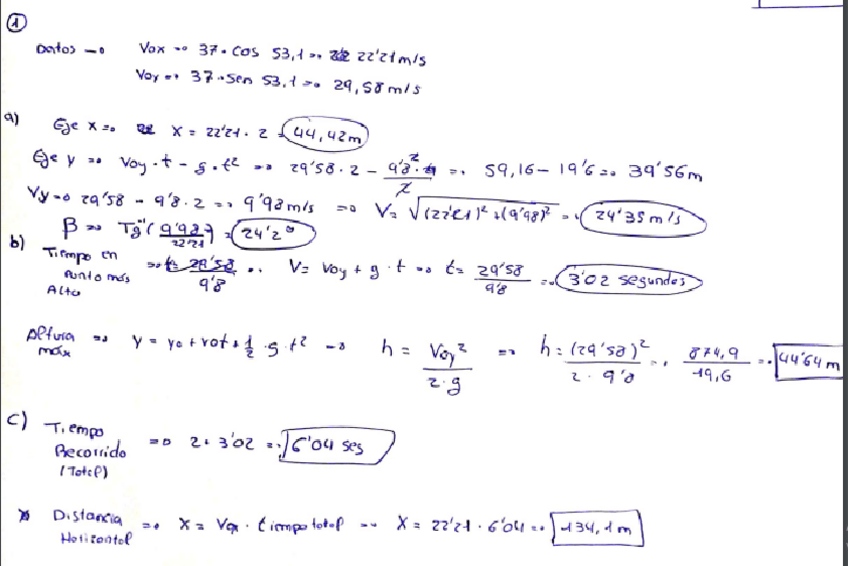 ①
Datos → Vox → 37 · cos 53,1 → 22'21 m/s
Voy → 37 · sen 53,1 → 29,58 m/s
a) Eje x → x = 22'21 · 2 = 44,42m
Eje y → Voy · t - g · t² → 29'58 · 2 - 9'8 · 2² / 2 → 59,16 - 19'6 → 39'56m
Vy → 29'58 - 9'8 · 2 → 9'98 m/s → V = √(22'21)² + (9'98)² = 24'35 m/s
β → Tg⁻¹ (9'98 / 22'21) = 24'2°
b) Tiempo en punto más Alto → t = 29'58 / 9'8 → V = Voy + g · t → t = 29'58 / 9'8 → 3'02 segundos
Altura máx → y = yo + vot + 1/2 · g · t² → h = Voy² / 2 · g → h = (29'58)² / 2 · 9'8 → 874,9 / 19,6 → 44'64 m
c) Tiempo Recorrido (Total) → 2 · 3'02 = 6'04 seg
Distancia Horizontal → x = Vox · tiempo total → x = 22'21 · 6'04 → 134,1 m